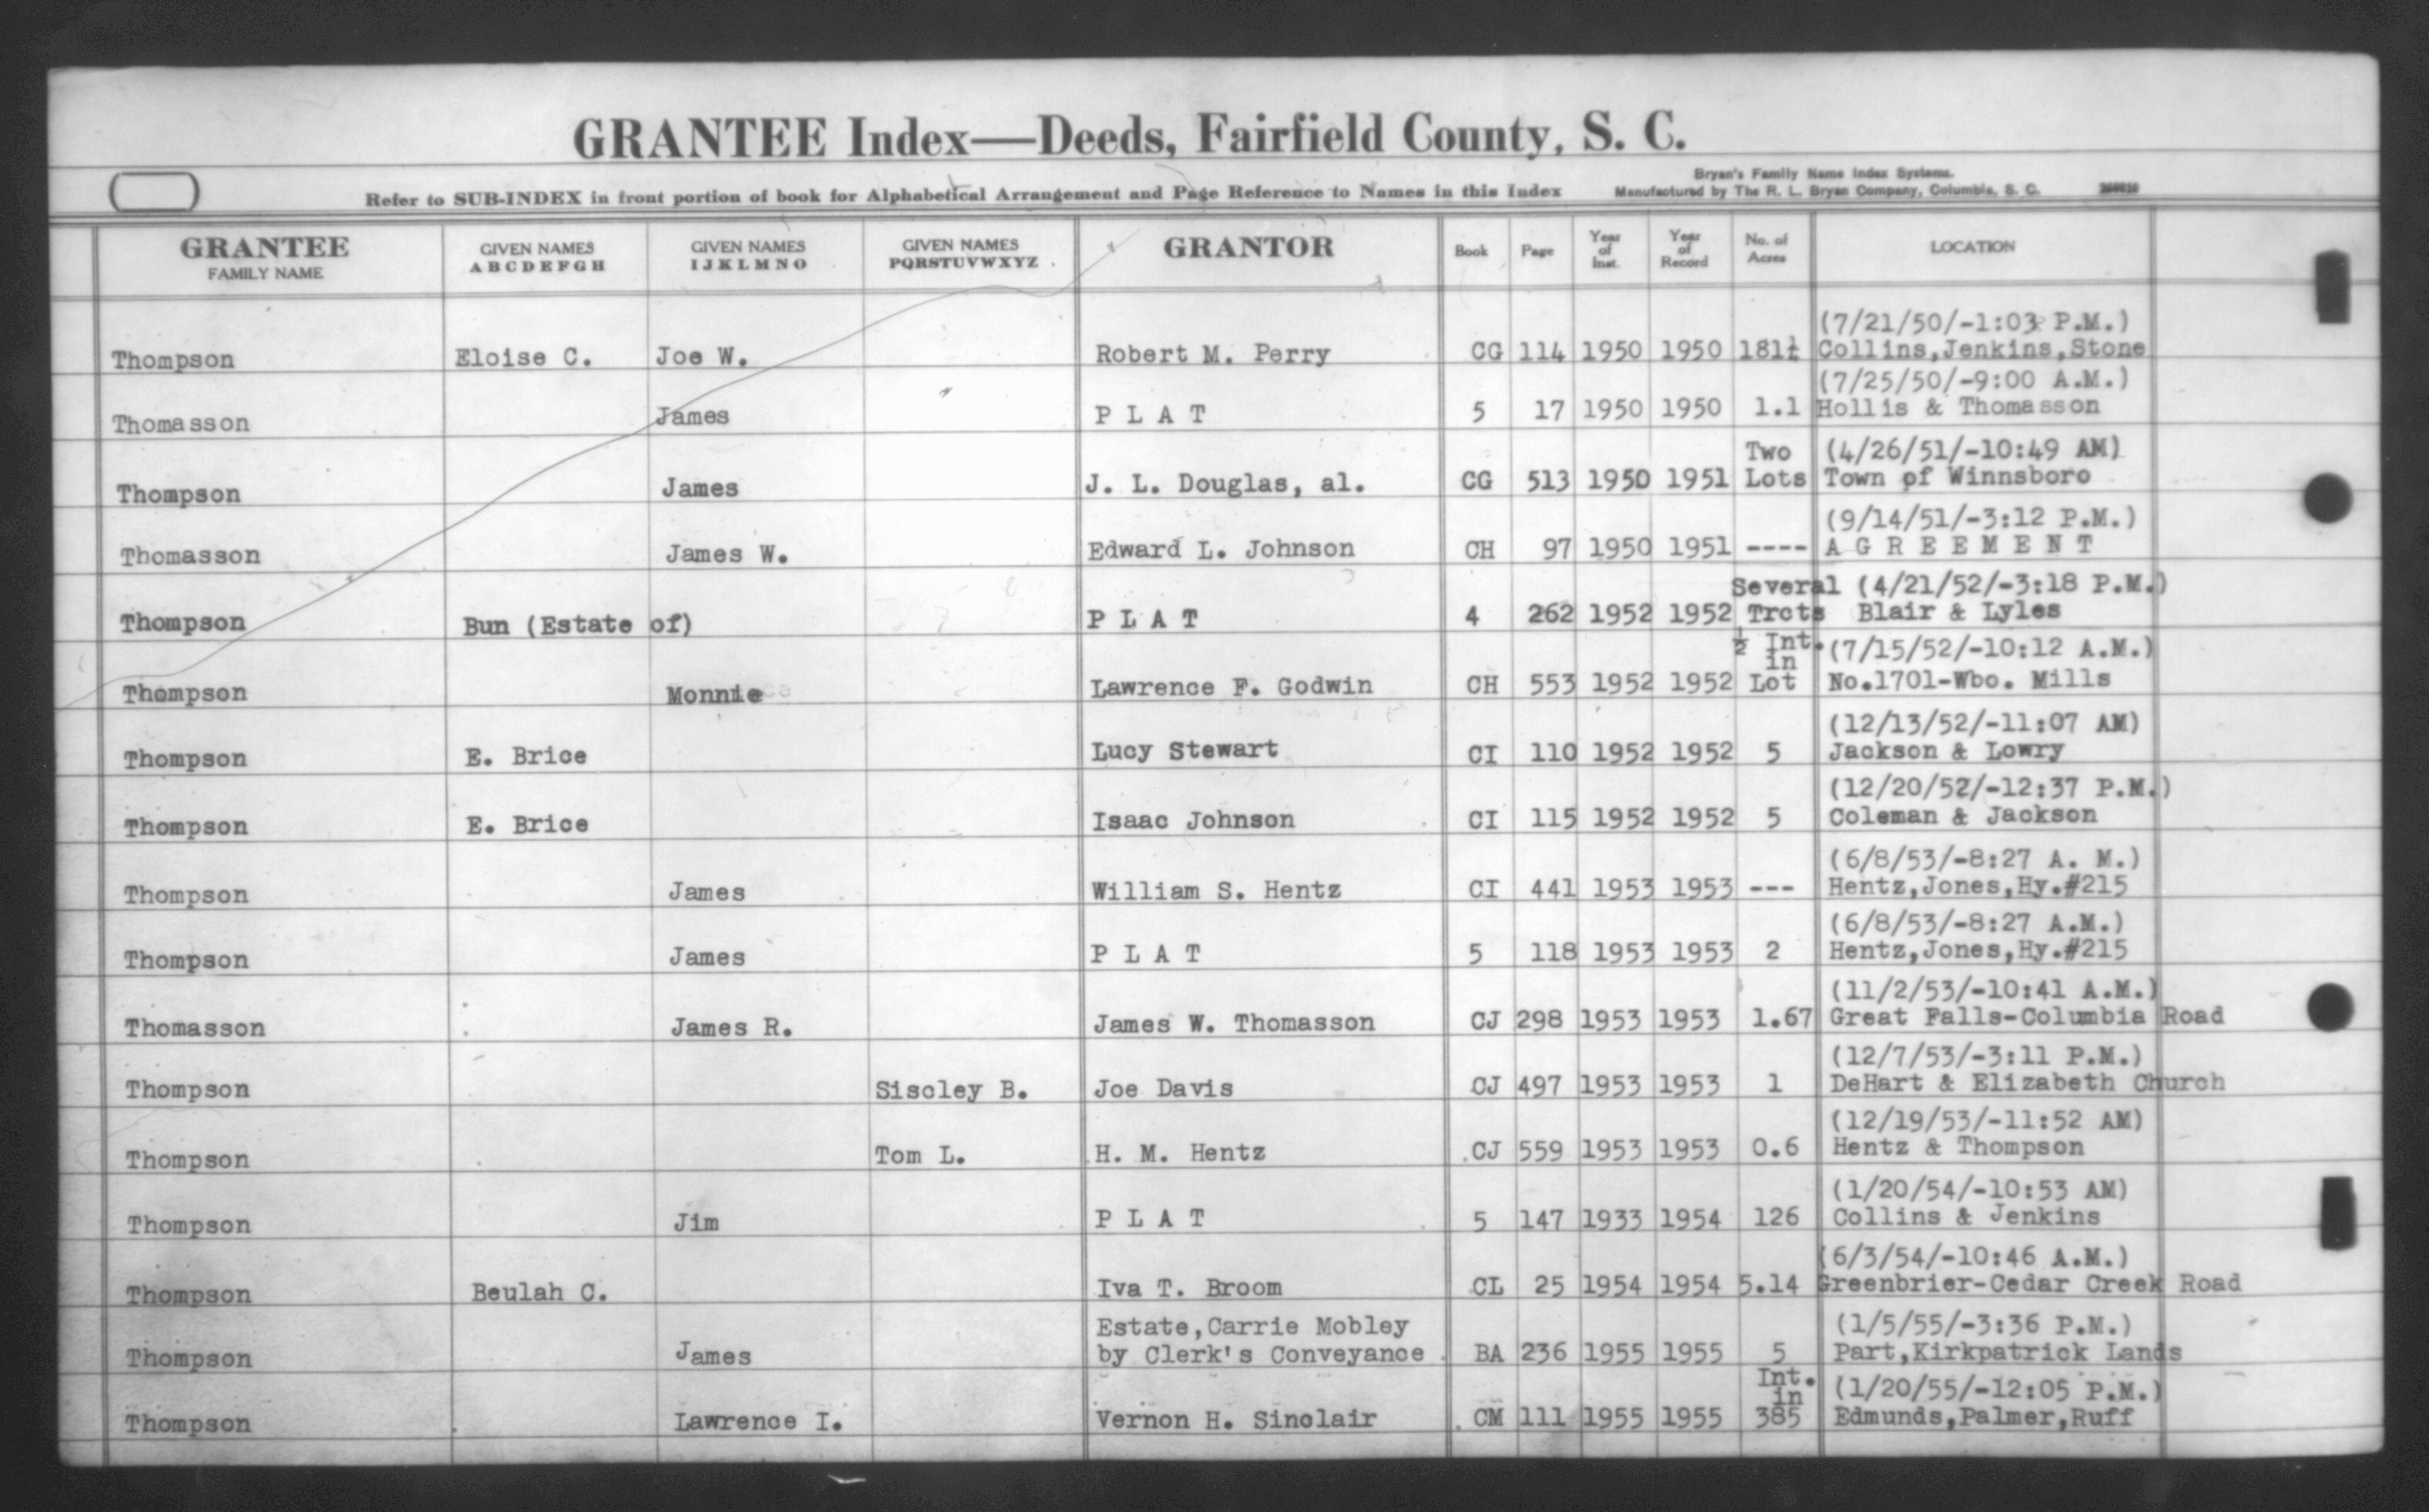 GRANTEE Index—Deeds, Fairfield County, S. C.
Bryan's Family Name Index Systems.
Refer to SUB-INDEX in front portion of book for Alphabetical Arrangement and Page Reference to Names in this Index
Manufactured by The R. L. Bryan Company, Columbia, S. C.
GRANTEE FAMILY NAME | GIVEN NAMES A B C D E F G H | GIVEN NAMES I J K L M N O | GIVEN NAMES P Q R S T U V W X Y Z | GRANTOR | Book | Page | Year of Inst. | Year of Record | No. of Acres | LOCATION
(7/21/50/-1:03 P.M.)
Thompson Eloise C. Joe W. Robert M. Perry CG 114 1950 1950 Collins,Jenkins,Stone
(7/25/50/-9:00 A.M.)
Thomasson James P L A T 5 17 1950 1950 1.1 Hollis & Thomasson
Two (4/26/51/-10:49 AM)
Thompson James J. L. Douglas, al. CG 513 1950 1951 Lots Town of Winnsboro
(9/14/51/-3:12 P.M.)
Thomasson James W. Edward L. Johnson CH 97 1950 1951 ---- A G R E E M E N T
Several (4/21/52/-3:18 P.M.)
Thompson Bun (Estate of) P L A T 4 262 1952 1952 Trcts Blair & Lyles
½ Int. in (7/15/52/-10:12 A.M.)
Thompson Monnie Lawrence F. Godwin CH 553 1952 1952 Lot No.1701-Wbo. Mills
(12/13/52/-11:07 AM)
Thompson E. Brice Lucy Stewart CI 110 1952 1952 5 Jackson & Lowry
(12/20/52/-12:37 P.M.)
Thompson E. Brice Isaac Johnson CI 115 1952 1952 5 Coleman & Jackson
(6/8/53/-8:27 A. M.)
Thompson James William S. Hentz CI 441 1953 1953 --- Hentz,Jones,Hy.#215
(6/8/53/-8:27 A.M.)
Thompson James P L A T 5 118 1953 1953 2 Hentz,Jones,Hy.#215
(11/2/53/-10:41 A.M.)
Thomasson James R. James W. Thomasson CJ 298 1953 1953 1.67 Great Falls-Columbia Road
(12/7/53/-3:11 P.M.)
Thompson Siscley B. Joe Davis CJ 497 1953 1953 1 DeHart & Elizabeth Church
(12/19/53/-11:52 AM)
Thompson Tom L. H. M. Hentz CJ 559 1953 1953 0.6 Hentz & Thompson
(1/20/54/-10:53 AM)
Thompson Jim P L A T 5 147 1933 1954 126 Collins & Jenkins
(6/3/54/-10:46 A.M.)
Thompson Beulah C. Iva T. Broom CL 25 1954 1954 5.14 Greenbrier-Cedar Creek Road
Estate,Carrie Mobley (1/5/55/-3:36 P.M.)
Thompson James by Clerk's Conveyance BA 236 1955 1955 5 Part,Kirkpatrick Lands
Int. in (1/20/55/-12:05 P.M.)
Thompson Lawrence I. Vernon H. Sinclair CM 111 1955 1955 385 Edmunds,Palmer,Ruff